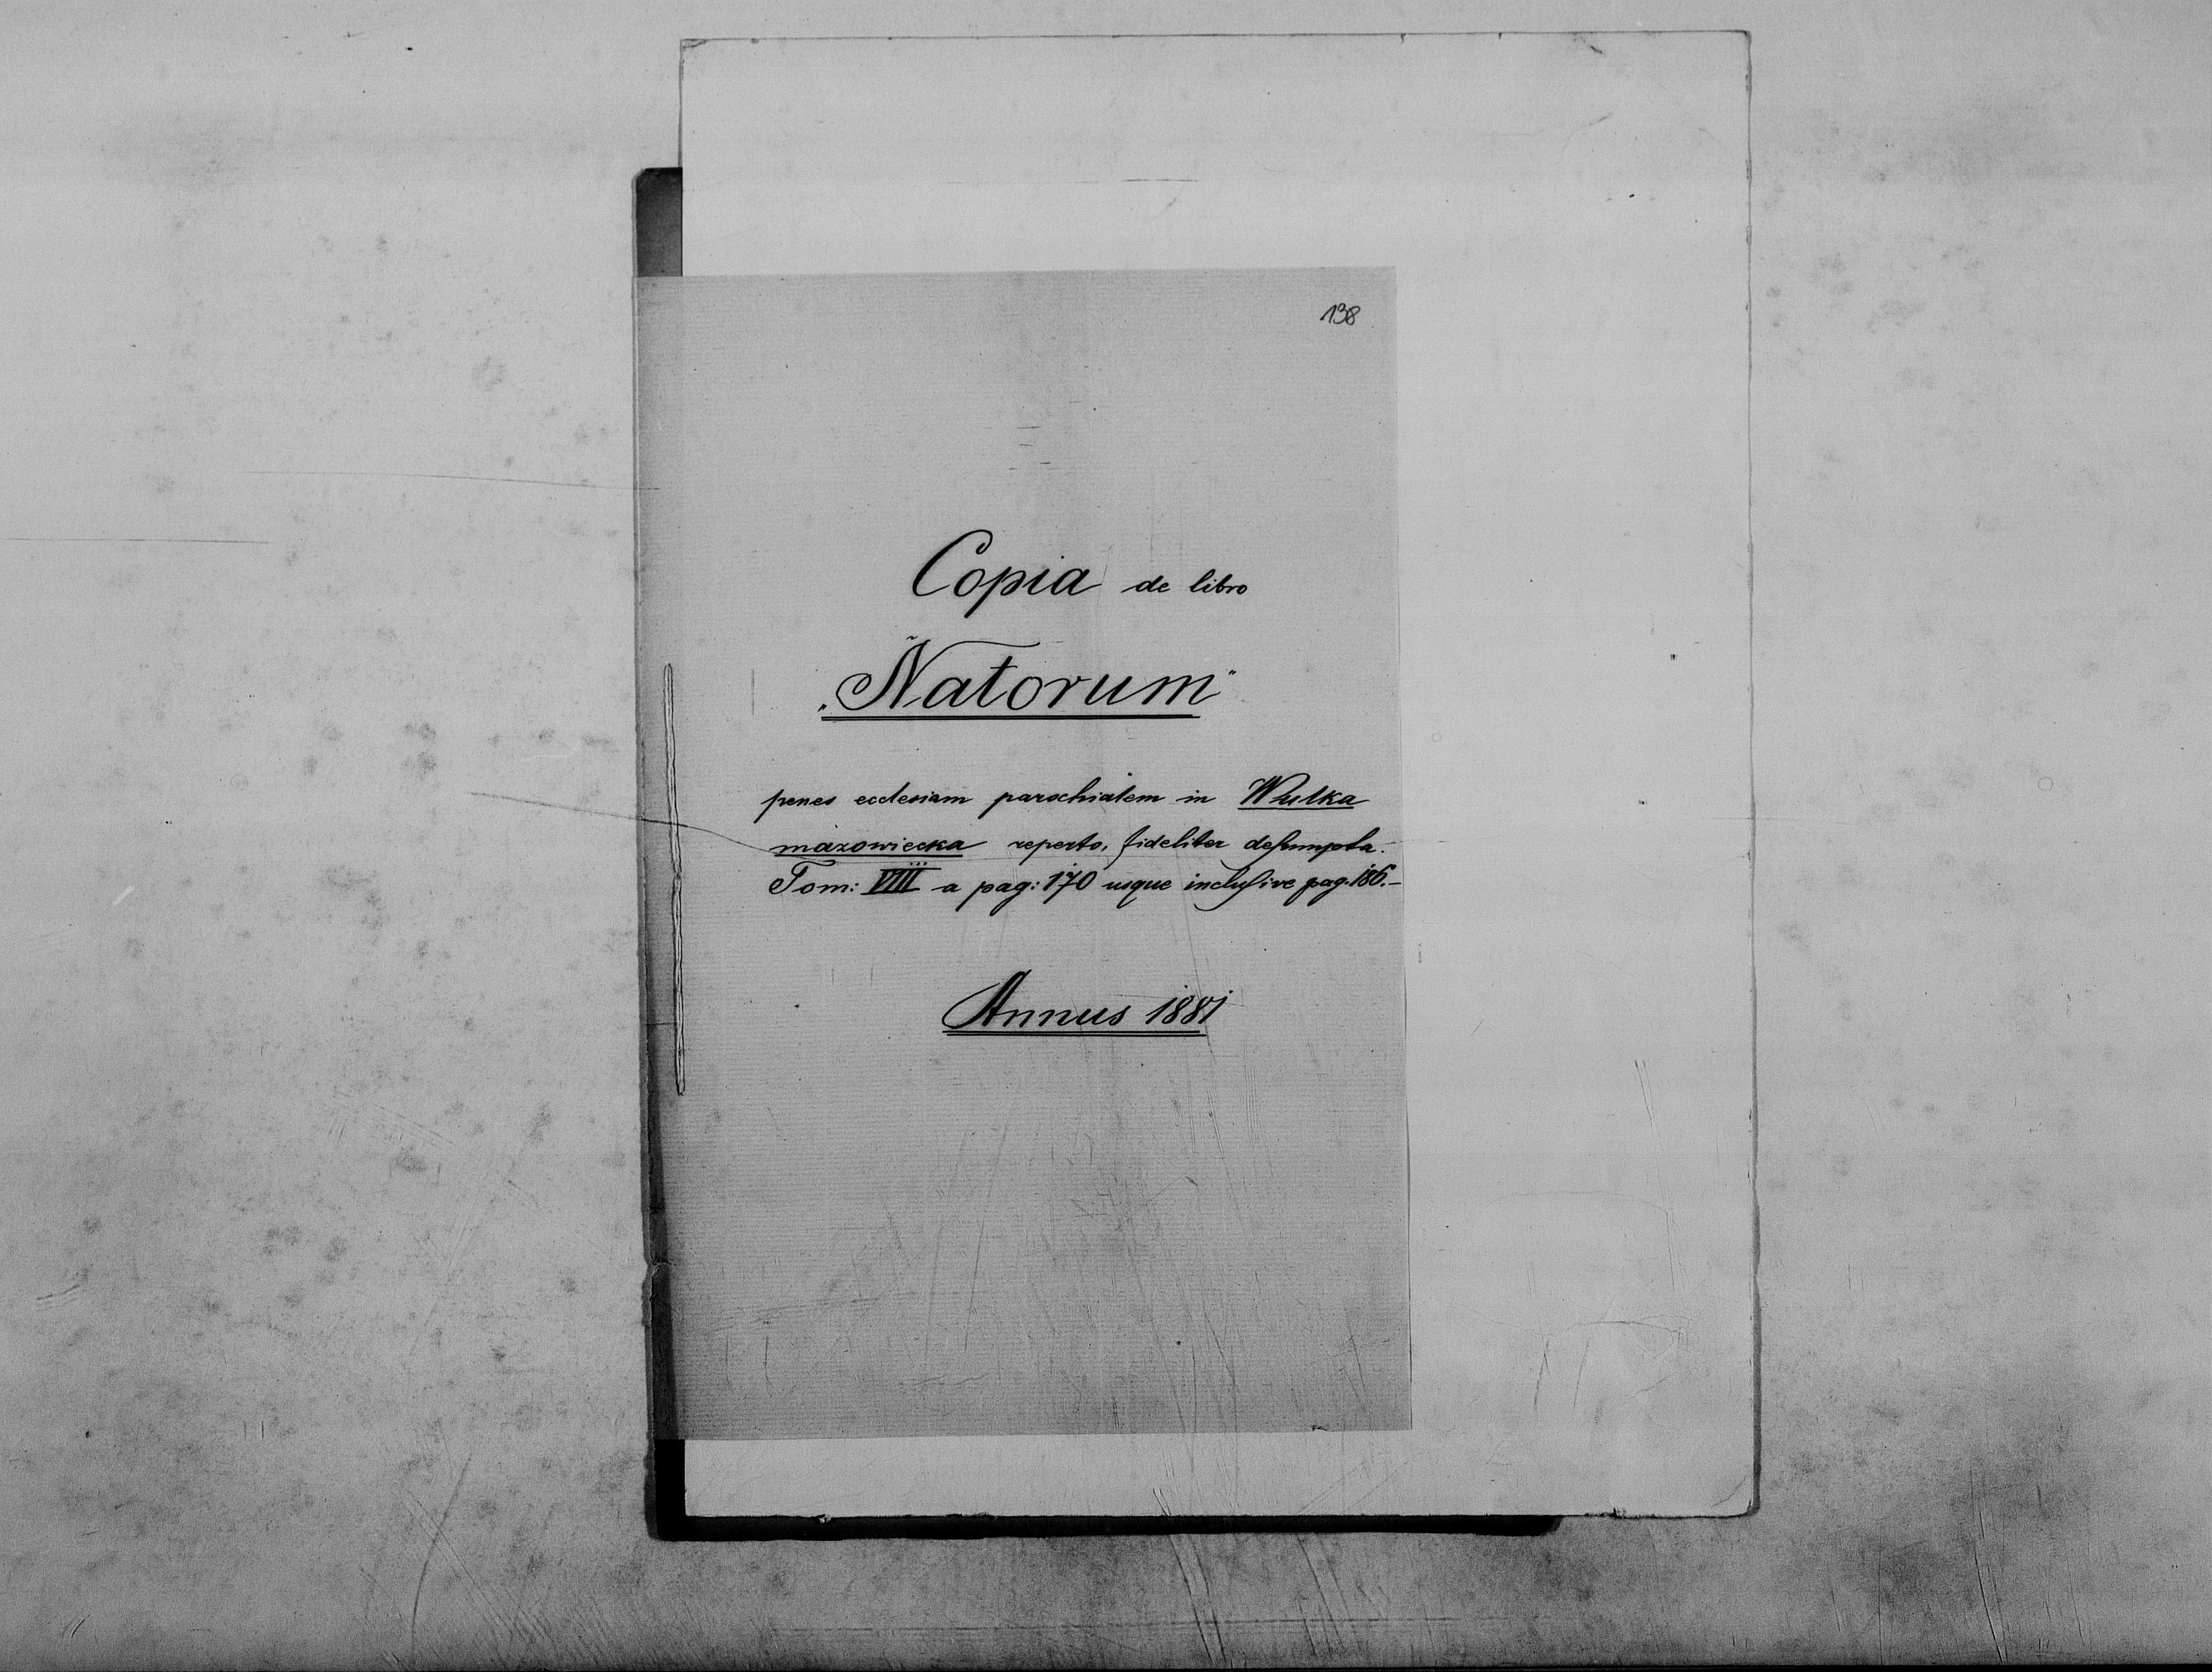 138
Copia de libro
„Natorum"
penes ecclesiam parochialem in Wulka
mazowiecka reperto, fideliter desumpta.
Tom: VIII a pag: 170 usque inclusive pag. 186.-
Annus 1881